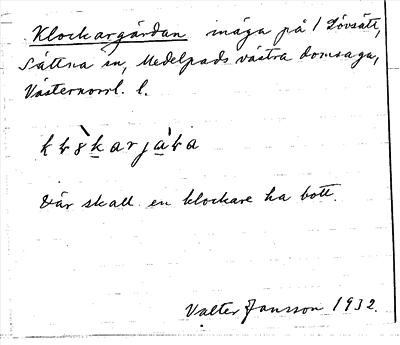 Klockargårdan inäga på / Lövsätt,
Sättna sn, Medelpads västra domsaga,
Västernorrl. l.
Där skall en klockare ha bott.
Valter Jansson 1932.